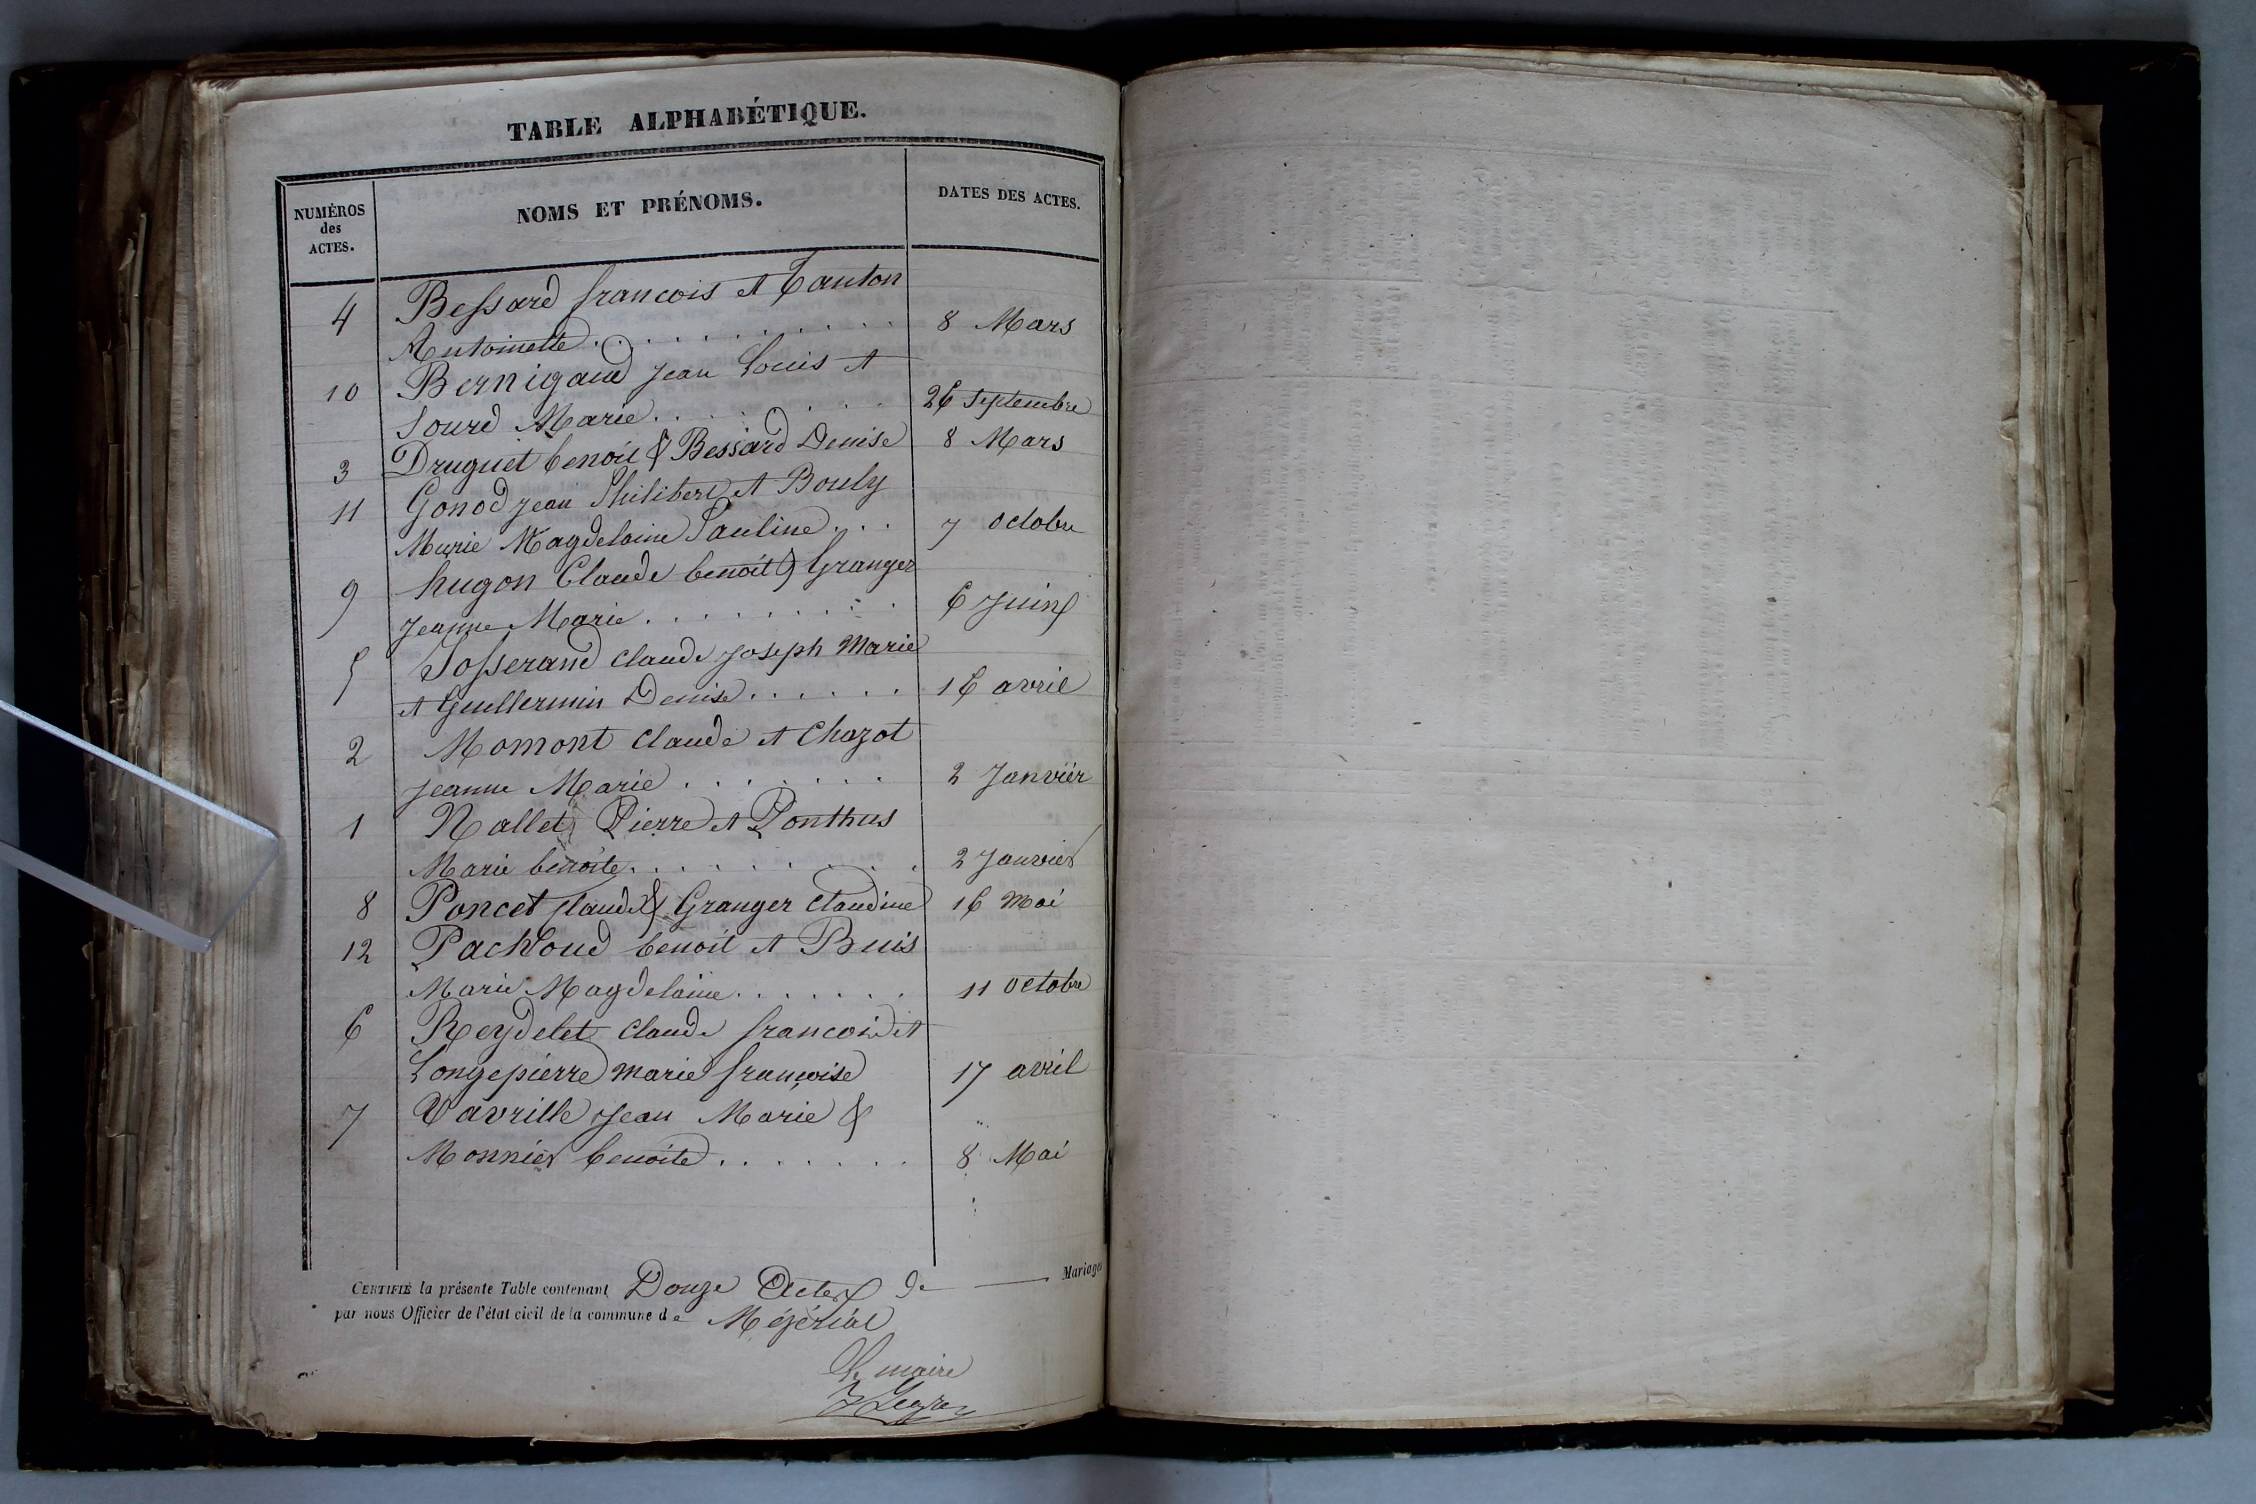 TABLE ALPHABÉTIQUE.
NUMÉROS des ACTES.
NOMS ET PRÉNOMS.
DATES DES ACTES.
4 Bessard francois et Tanton
Antoinette . . . . . . . . . . . 8 Mars
10 Bernigaud Jean Louis et
Sourd Marie . . . . . . . . 26 Septembre
3 Druguet benoit & Bessard Denise 8 Mars
11 Gonod Jean Philibert et Bouly
Marie Magdelaine Pauline . . . 7 octobre
9 hugon Claude benoit & Granger
Jeanne Marie . . . . . . . . . 6 Juin
5 Josserand claude Joseph Marie
et Guillermin Denise . . . . . . 16 avril
2 Momont claude et Chazot
Jeanne Marie . . . . . . . 2 Janvier
1 Nallet Pierre et Ponthus
Marie benoite . . . . . . . . . . 2 Janvier
8 Poncet claude & Granger Claudine 16 Mai
12 Pachoud benoit et Buis
Marie Magdelaine . . . . . . . 11 octobre
6 Reydelet claude francois et
Longepierre marie françoise 17 avril
7 Vavrille Jean Marie &
Monnier benoite . . . . . . . 8 Mai
CERTIFIÉ la présente Table contenant Douze Actes de Mariage
par nous Officier de l'état civil de la commune de Mézériat
Le maire